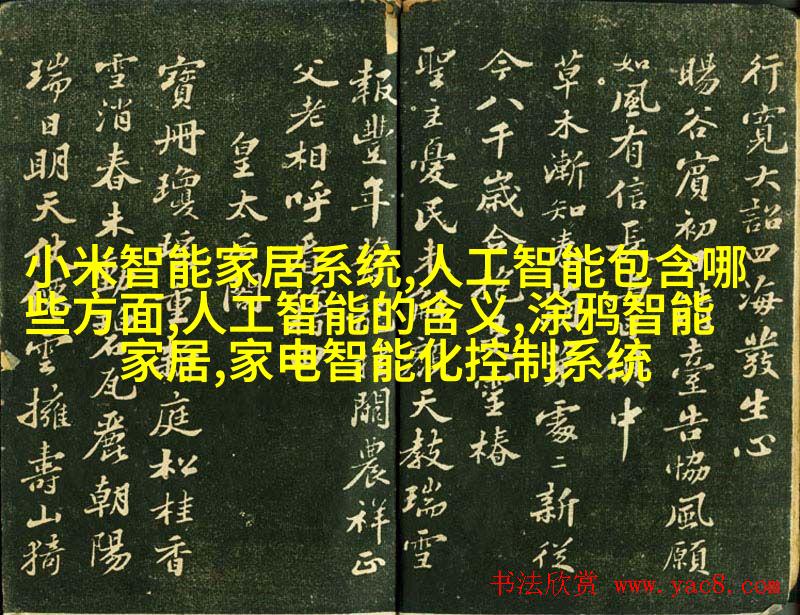 行寬大詔四海發生心
暘谷賓初臺告協風願
如風有信長中
草木漸知春處〻新從
今八千歲合椿
聖主憂民天教瑞雪
報豐年關農祥正
父老相呼看
皇太后閣
寶冊瓊重庭松桂香
雪消春未瓦麗朝陽
瑞日明天仗雲擁壽山猗
小米智能家居系统,人工智能包含哪
些方面,人工智能的含义,涂鸦智能
家居,家电智能化控制系统
书法欣赏 www.yac8.com